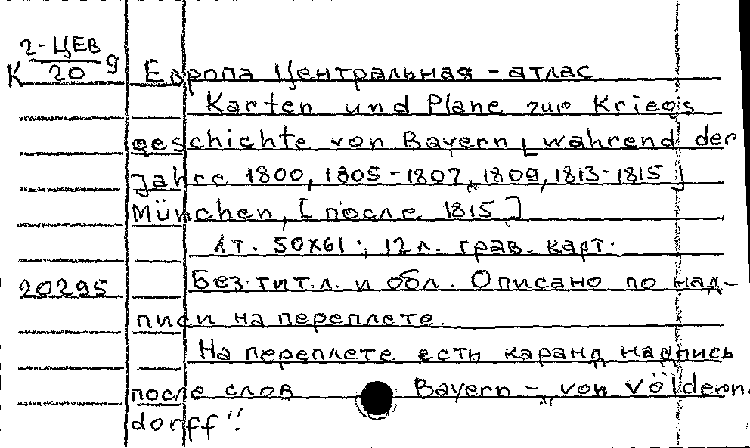 К 2-ЦЕВ/20 9
Европа Центральная - атлас
Karten und Plane zur Kriegs
geschichte von Bayern [während der
Jahre 1800, 1805-1807, 1809, 1813-1815]
München, [после 1815]
Лт. 50x61; 12 л. грав. карт.
20295 Без тит. л. и обл. Описано по над-
писи на переплете.
На переплете есть каранд. надпись
после слов Bayern - "von Völdern
dorff"